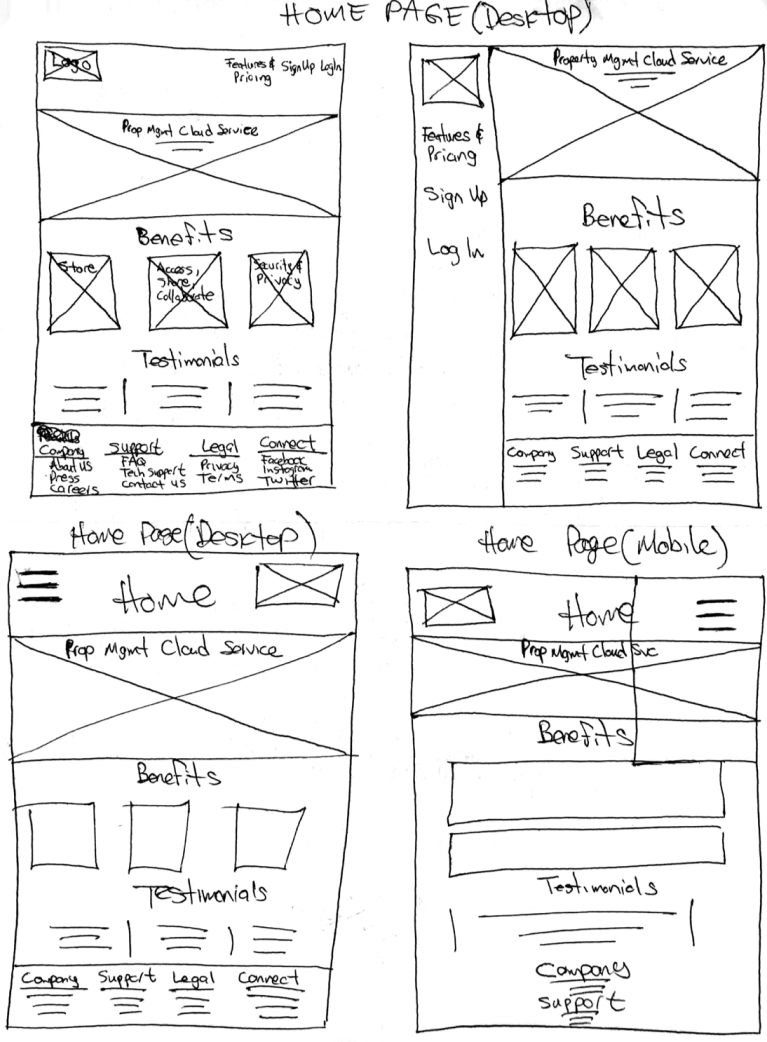 HOME PAGE (Desktop)
Logo
Features & SignUp LogIn
Pricing
Prop Mgmt Cloud Service
Benefits
Store
Access,
Share,
Collaborate
Security &
Privacy
Testimonials
Company Support Legal Connect
About US FAQ Privacy Facebook
Press Tech Support Terms Instagram
Careers Contact US Twitter
Property Mgmt Cloud Service
Features &
Pricing
Sign Up
Log In
Benefits
Testimonials
Company Support Legal Connect
Home Page (Desktop)
Home
Prop Mgmt Cloud Service
Benefits
Testimonials
Company Support Legal Connect
Home Page (Mobile)
Home
Prop Mgmt Cloud Svc
Benefits
Testimonials
Company
Support